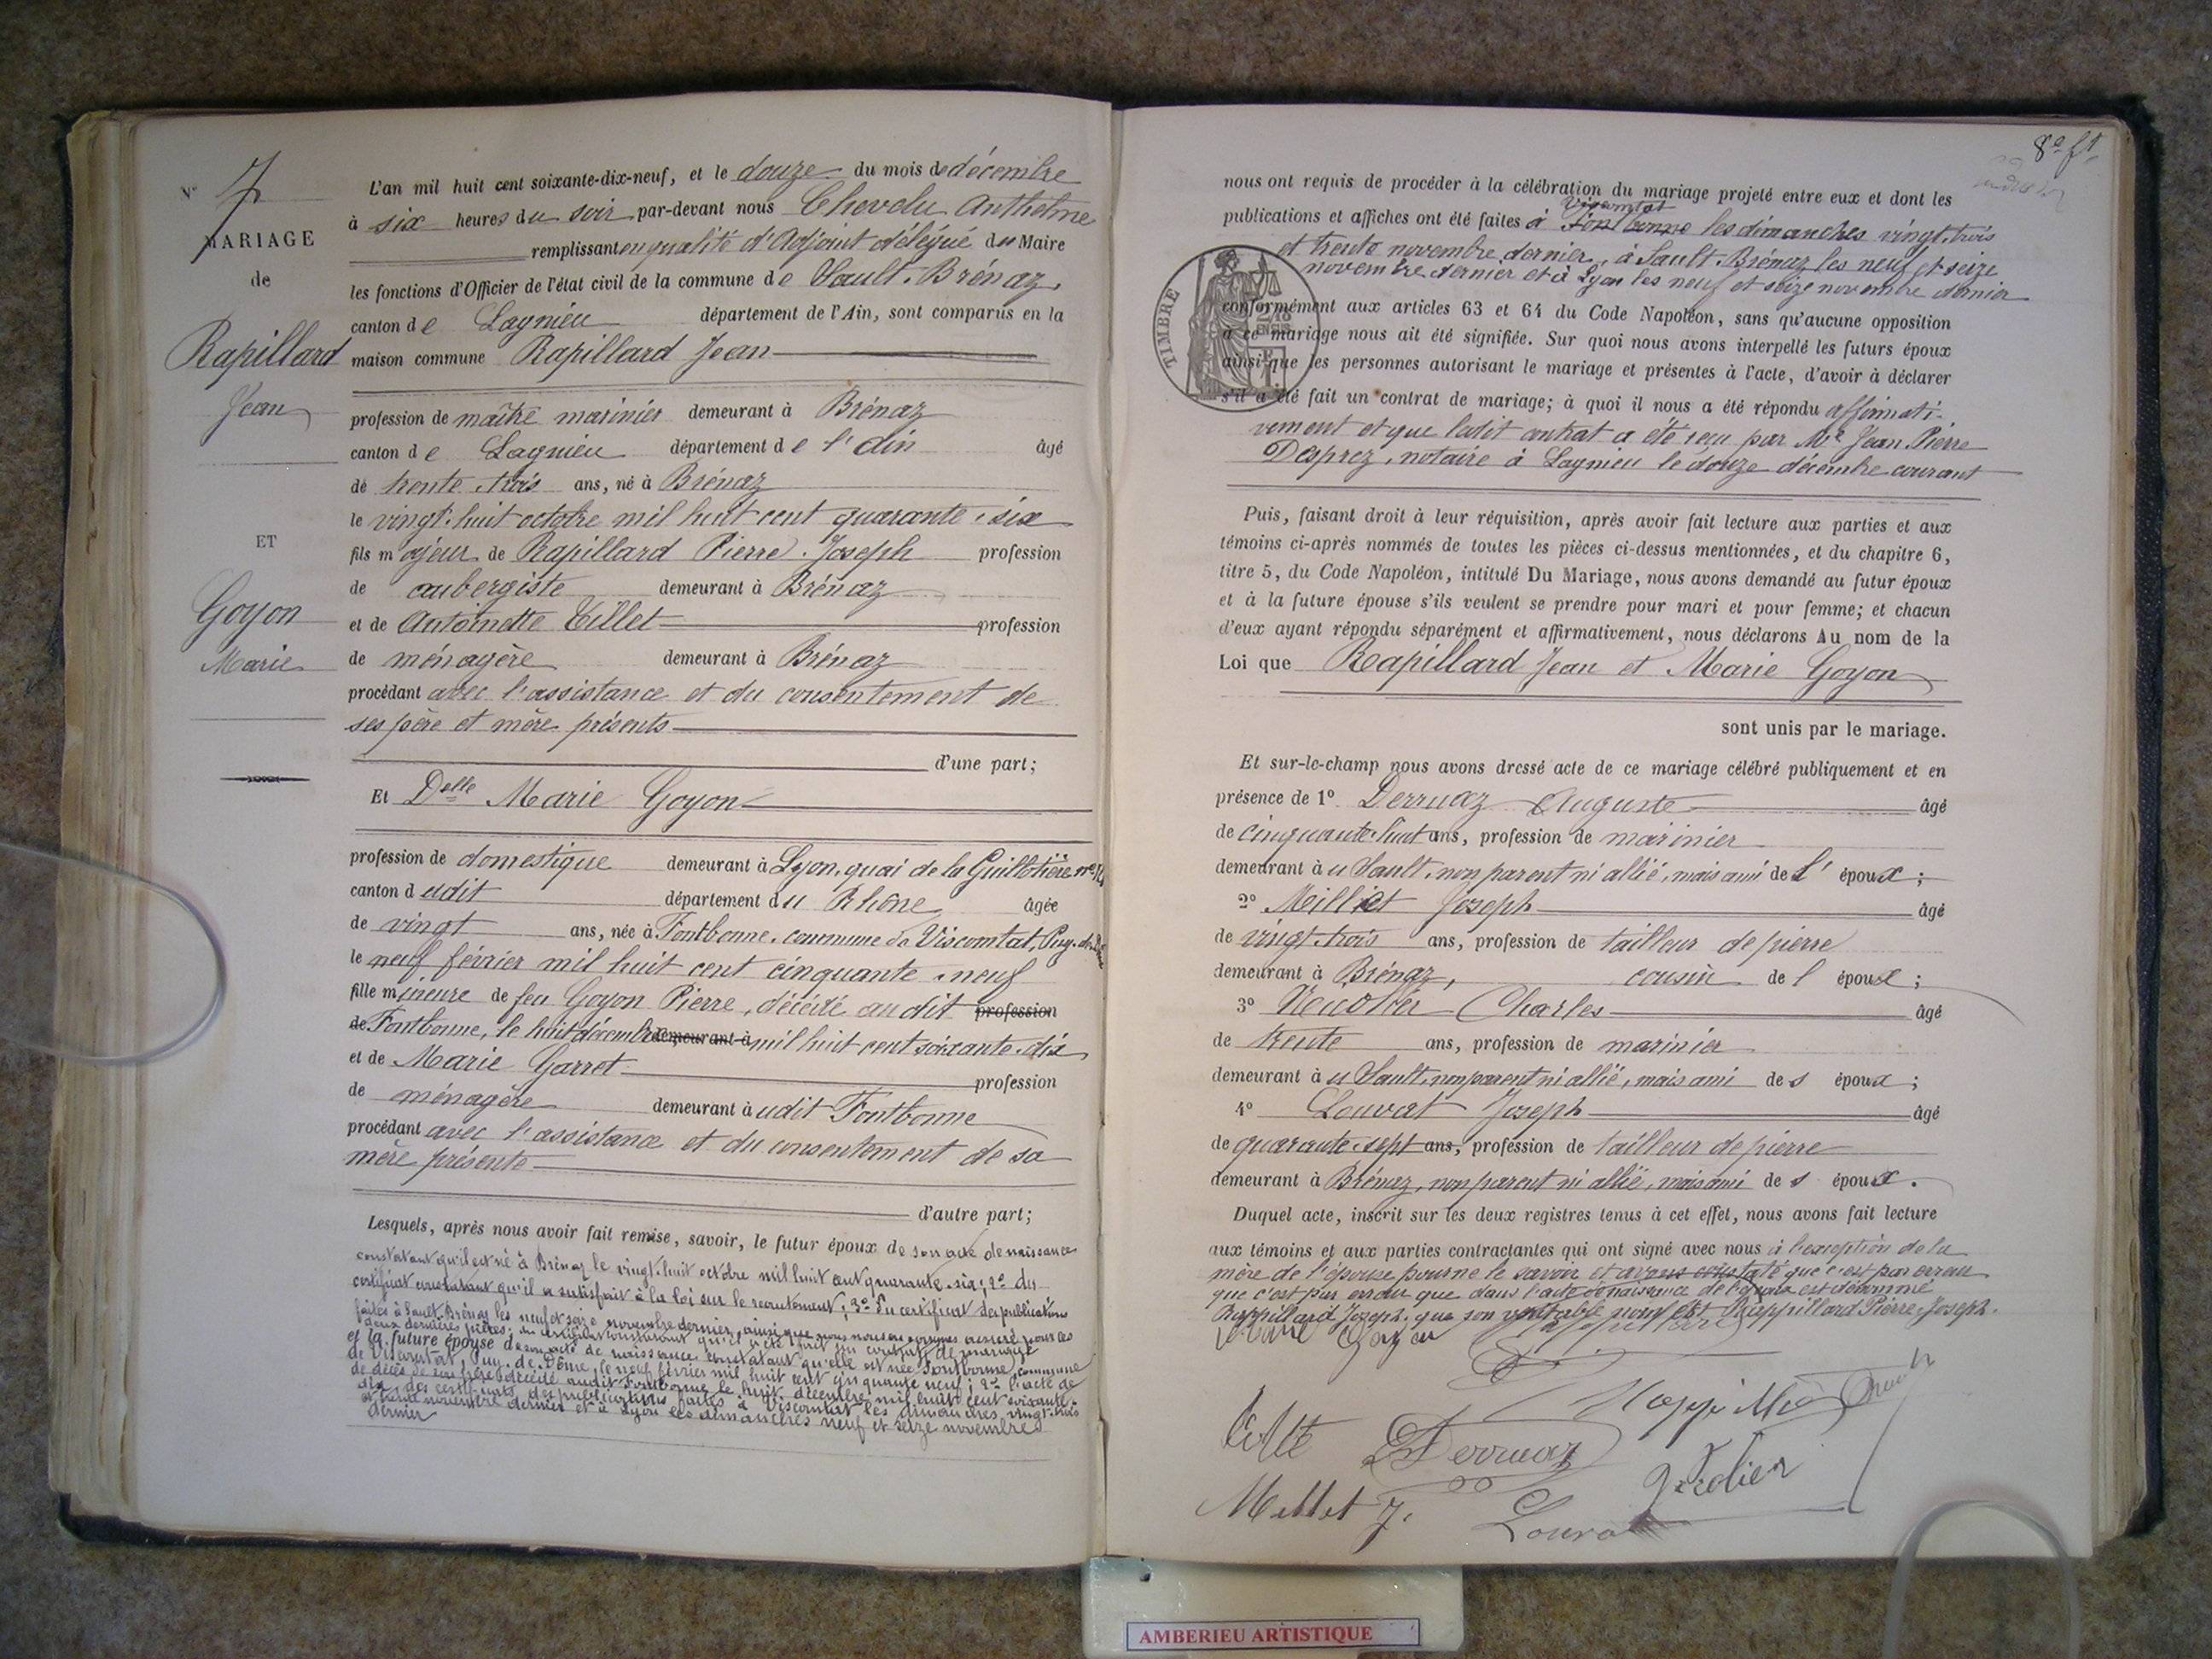 N° 7
MARIAGE
de
Rapillard
Jean
ET
Goyon
Marie
L'an mil huit cent soixante-dix-neuf, et le douze du mois de décembre
à six heures du soir par-devant nous Chevelu Anthelme
remplissant en qualité d'Adjoint délégué du Maire
les fonctions d'Officier de l'état civil de la commune de Sault-Brénaz,
canton de Lagnieu département de l'Ain, sont comparus en la
maison commune Rapillard Jean
profession de maître marinier demeurant à Brénaz
canton de Lagnieu département de l'Ain âgé
de trente-trois ans, né à Brénaz
le vingt-huit octobre mil huit cent quarante-six
fils majeur de Rapillard Pierre-Joseph profession
de aubergiste demeurant à Brénaz
et de Antoinette Tillet profession
de ménagère demeurant à Brénaz
procédant avec l'assistance et du consentement de
ses père et mère présents
d'une part;
Et Delle Marie Goyon
profession de domestique demeurant à Lyon, quai de la Guillotière n°
canton dudit département du Rhône âgée
de vingt ans, née à Fontbonne, commune de Viscomtat, Puy-de-Dôme
le neuf février mil huit cent cinquante-neuf
fille mineure de feu Goyon Pierre, décédé audit profession
de Fontbonne, le huit décembre demeurant à mil huit cent soixante-dix
et de Marie Garret profession
de ménagère demeurant audit Fontbonne
procédant avec l'assistance et du consentement de sa
mère présente
d'autre part;
Lesquels, après nous avoir fait remise, savoir, le futur époux de son acte de naissance
constatant qu'il est né à Brénaz le vingt-huit octobre mil huit cent quarante-six; 2° du
certificat constatant qu'il a satisfait à la loi sur le recrutement; 3° du certificat des publications
faites à Sault-Brénaz les neuf et seize novembre dernier, ainsi que nous nous en sommes assuré pour ces
deux dernières pièces; du certificat constatant qu'il a été fait un contrat de mariage
et la future épouse de son acte de naissance constatant qu'elle est née Fontbonne, commune
de Viscomtat, Puy-de-Dôme, le neuf février mil huit cent cinquante neuf; 2° l'acte de
de décès de son père décédé audit Fontbonne le huit décembre mil huit cent soixante-
dix, des certificats des publications faites à Viscomtat les dimanches vingt-trois
et trente novembre dernier et à Lyon les dimanches neuf et seize novembre
dernier
8e ft
nous ont requis de procéder à la célébration du mariage projeté entre eux et dont les
Viscomtat
publications et affiches ont été faites à Fontbonne les dimanches vingt-trois
et trente novembre dernier, à Sault-Brénaz les neuf et seize
novembre dernier et à Lyon les neuf et seize novembre dernier
TIMBRE
conformément aux articles 63 et 64 du Code Napoléon, sans qu'aucune opposition
à ce mariage nous ait été signifiée. Sur quoi nous avons interpellé les futurs époux
ainsi que les personnes autorisant le mariage et présentes à l'acte, d'avoir à déclarer
s'il a été fait un contrat de mariage; à quoi il nous a été répondu affirmati-
vement et que ledit contrat a été reçu par Me Jean Pierre
Desprez, notaire à Lagnieu le douze décembre courant
Puis, faisant droit à leur réquisition, après avoir fait lecture aux parties et aux
témoins ci-après nommés de toutes les pièces ci-dessus mentionnées, et du chapitre 6,
titre 5, du Code Napoléon, intitulé Du Mariage, nous avons demandé au futur époux
et à la future épouse s'ils veulent se prendre pour mari et pour femme; et chacun
d'eux ayant répondu séparément et affirmativement, nous déclarons Au nom de la
Loi que Rapillard Jean et Marie Goyon
sont unis par le mariage.
Et sur-le-champ nous avons dressé acte de ce mariage célébré publiquement et en
présence de 1° Derruaz Auguste âgé
de cinquante-huit ans, profession de marinier
demeurant à u Sault, non parent ni allié, mais ami de l' époux;
2° Milliet Joseph âgé
de vingt-trois ans, profession de tailleur de pierre
demeurant à Brénaz, cousin de l époux;
3° Charles âgé
de trente ans, profession de marinier
demeurant à u Sault, non parent ni allié, mais ami des époux;
4° Louvat Joseph âgé
de quarante-sept ans, profession de tailleur de pierre
demeurant à Brénaz, non parent ni allié, mais ami des époux.
Duquel acte, inscrit sur les deux registres tenus à cet effet, nous avons fait lecture
aux témoins et aux parties contractantes qui ont signé avec nous à l'exception de la
mère de l'épouse pour ne le savoir et avons constaté que c'est par erreur
que c'est par erreur que dans l'acte de naissance de l'époux est dénommé
Rappillard Joseph, que son véritable nom est Rappillard Pierre-Joseph.
Marie Goyon
Derruaz
Mellet J.
Louvat
AMBERIEU ARTISTIQUE